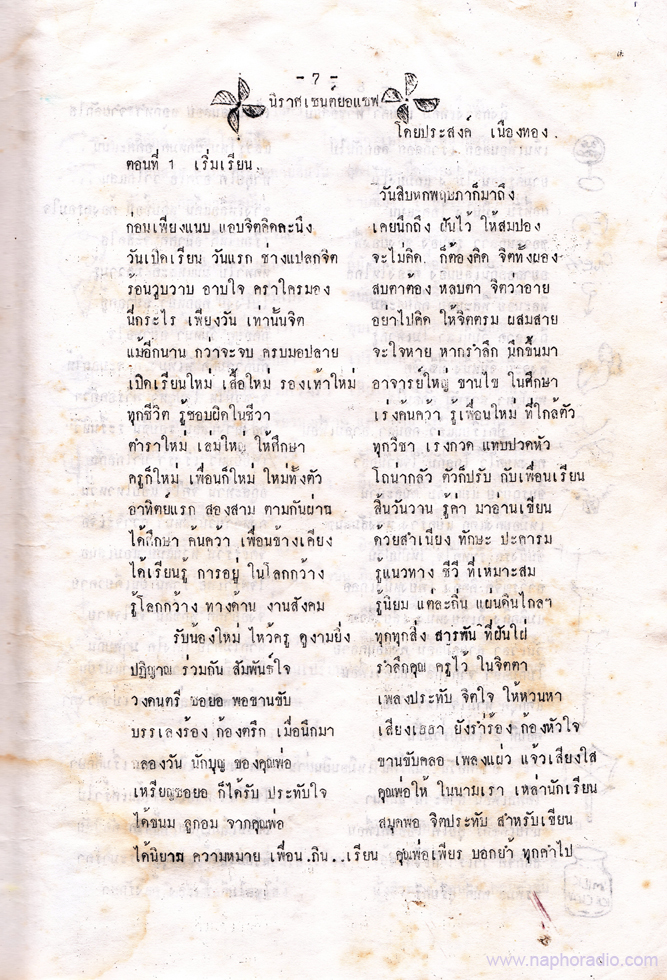 - 7 -
นิราศเซนต์ยอแซฟ
โดยประสงค์ เนืองทอง.
ตอนที่ 1 เริ่มเรียน.
วันสิบหกพฤษภาก็มาถึง
ก่อนเพียงแนบ แอบจิตคิดคะนึง เคยนึกถึง ฝันไว้ ให้สมปอง
วันเปิดเรียน วันแรก ช่างแปลกจิต จะไม่คิด ก็ต้องคิด จิตทั้งผอง
ร้อนวูบวาบ อาบใจ คราใครมอง สบตาต้อง หลบตา จิตว่าอาย
นี่กระไร เพียงวัน เท่านั้นจิต อย่าไปคิด ให้จิตตรม ผสมสาย
แม้อีกนาน กว่าจะจบ ครบมอปลาย จะใจหาย หากรำลึก นึกขึ้นมา
เปิดเรียนใหม่ เสื้อใหม่ รองเท้าใหม่ อาจารย์ใหญ่ ขานไข ในศึกษา
ทุกชีวิต รู้ชอบผิดในชีวา เร่งค้นคว้า รู้เพื่อนใหม่ ที่ใกล้ตัว
ตำราใหม่ เล่มใหญ่ ให้ศึกษา ทุกวิชา เร่งกวด แทบปวดหัว
ครูก็ใหม่ เพื่อนก็ใหม่ ใหม่ทั้งตัว โถน่ากลัว ตัวก็ปรับ กับเพื่อนเรียน
อาทิตย์แรก สองสาม ตามกันผ่าน สิ้นวันวาน รู้ค่า มาอ่านเขียน
ได้ศึกษา ค้นคว้า เพื่อนข้างเคียง ด้วยสำเนียง ทักษะ ปะคารม
ได้เรียนรู้ การอยู่ ในโลกกว้าง รู้แนวทาง ชีวี ที่เหมาะสม
รู้โลกกว้าง ทางด้าน งานสังคม รู้นิยม แต่ละถิ่น แผ่นดินไกลฯ
รับน้องใหม่ ไหว้ครู ดูงามยิ่ง ทุกทุกสิ่ง สารพัน ที่ฝันใฝ่
ปฏิญาณ ร่วมกัน สัมพันธ์ใจ รำลึกคุณ ครูไว้ ในจิตตา
วงดนตรี ซอยอ พอขานขับ เพลงประทับ จิตใจ ให้หวนหา
บรรเลงร้อง ก้องตรึก เมื่อนึกมา เสียงเธอา ยังร่ำร้อง ก้องหัวใจ
ฉลองวัน นักบุญ ของคุณพ่อ ขานขับคลอ เพลงแผ่ว แจ้วเสียงใส
เหรียญซอยอ ก็ได้รับ ประทับใจ คุณพ่อให้ ในนามเรา เหล่านักเรียน
ได้ขนม ลูกอม จากคุณพ่อ สมุดพอ จิตประทับ สำหรับเขียน
ได้นิยาม ความหมาย เพื่อน..กิน..เรียน คุณพ่อเพียร บอกย้ำ ทุกคำไป
www.naphoradio.com